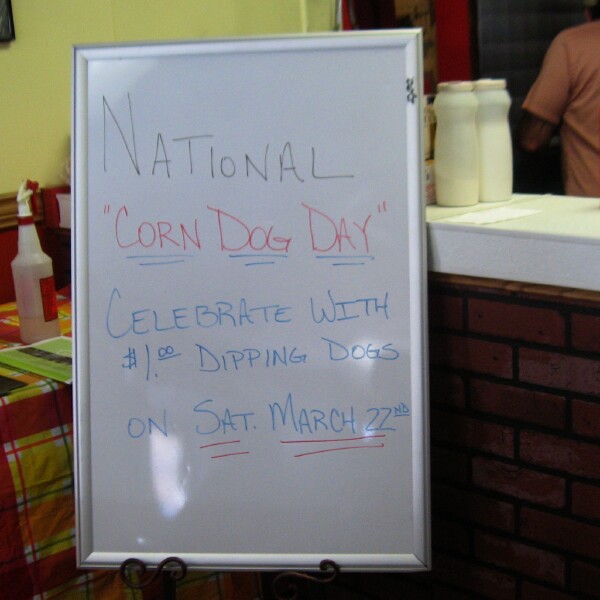 NATIONAL
"CORN DOG DAY"
CELEBRATE WITH
$1.00 DIPPING DOGS
ON SAT. MARCH 22ND